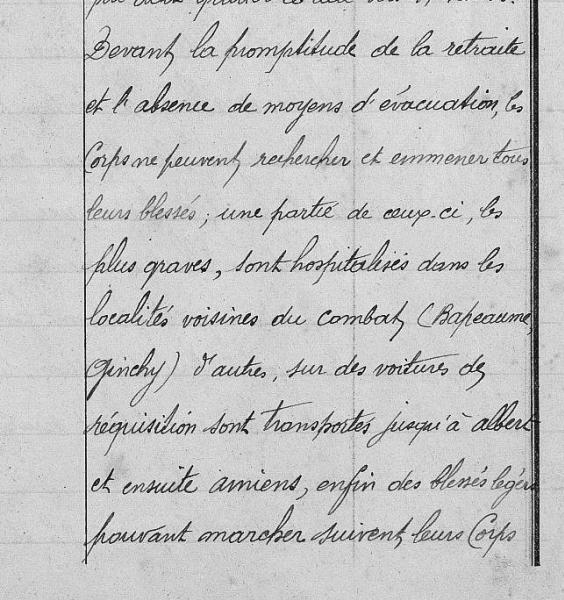 Devant la promptitude de la retraite
et l'absence de moyens d'évacuation, les
Corps ne peuvent rechercher et emmener tous
leurs blessés ; une partie de ceux-ci, les
plus graves, sont hospitalisés dans les
localités voisines du combat (Bapeaume,
Ginchy) d'autres, sur des voitures de
réquisition sont transportés jusqu'à albert
et ensuite amiens, enfin des blessés légers
pouvant marcher suivent leurs Corps